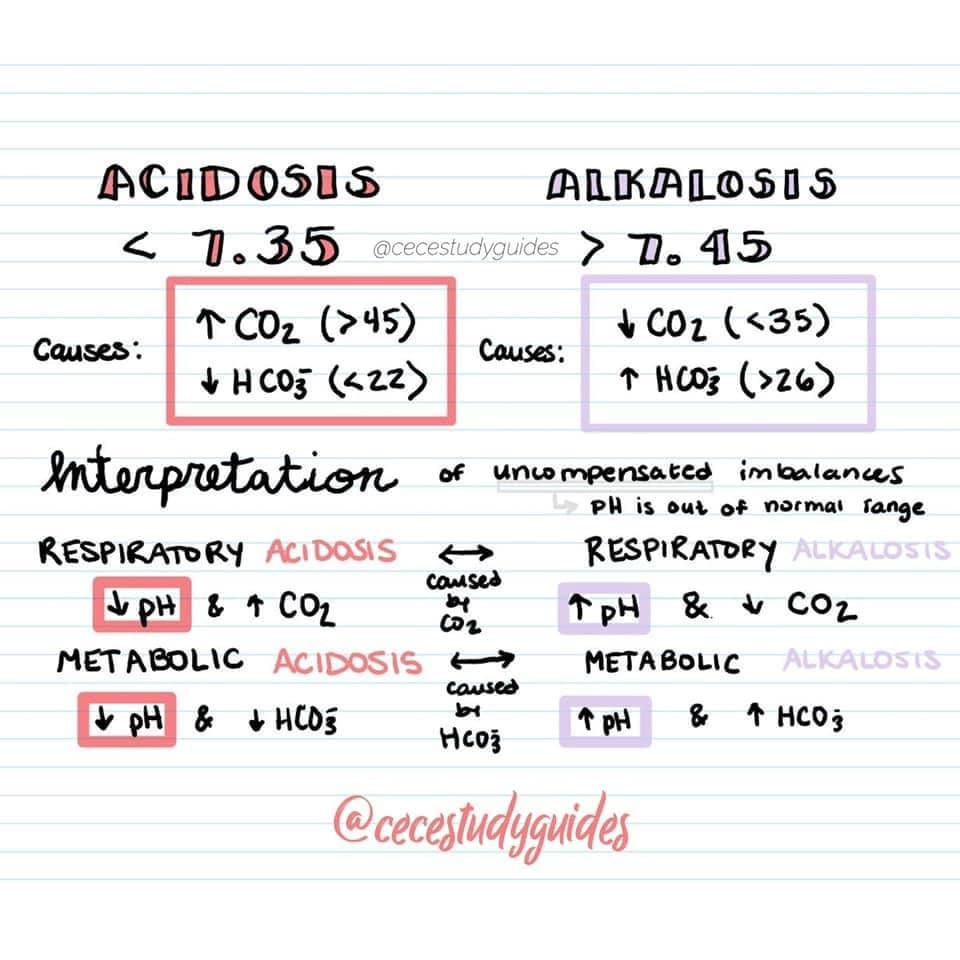 ACIDOSIS
< 7.35
Causes:
↑ CO₂ (>45)
↓ HCO₃⁻ (<22)
@cecestudyguides
ALKALOSIS
> 7.45
Causes:
↓ CO₂ (<35)
↑ HCO₃⁻ (>26)
Interpretation of uncompensated imbalances
↳ PH is out of normal range
RESPIRATORY ACIDOSIS ↔ RESPIRATORY ALKALOSIS
caused
by
CO₂
↓ pH & ↑ CO₂
↑ pH & ↓ CO₂
METABOLIC ACIDOSIS ↔ METABOLIC ALKALOSIS
caused
by
HCO₃⁻
↓ pH & ↓ HCO₃⁻
↑ pH & ↑ HCO₃⁻
@cecestudyguides